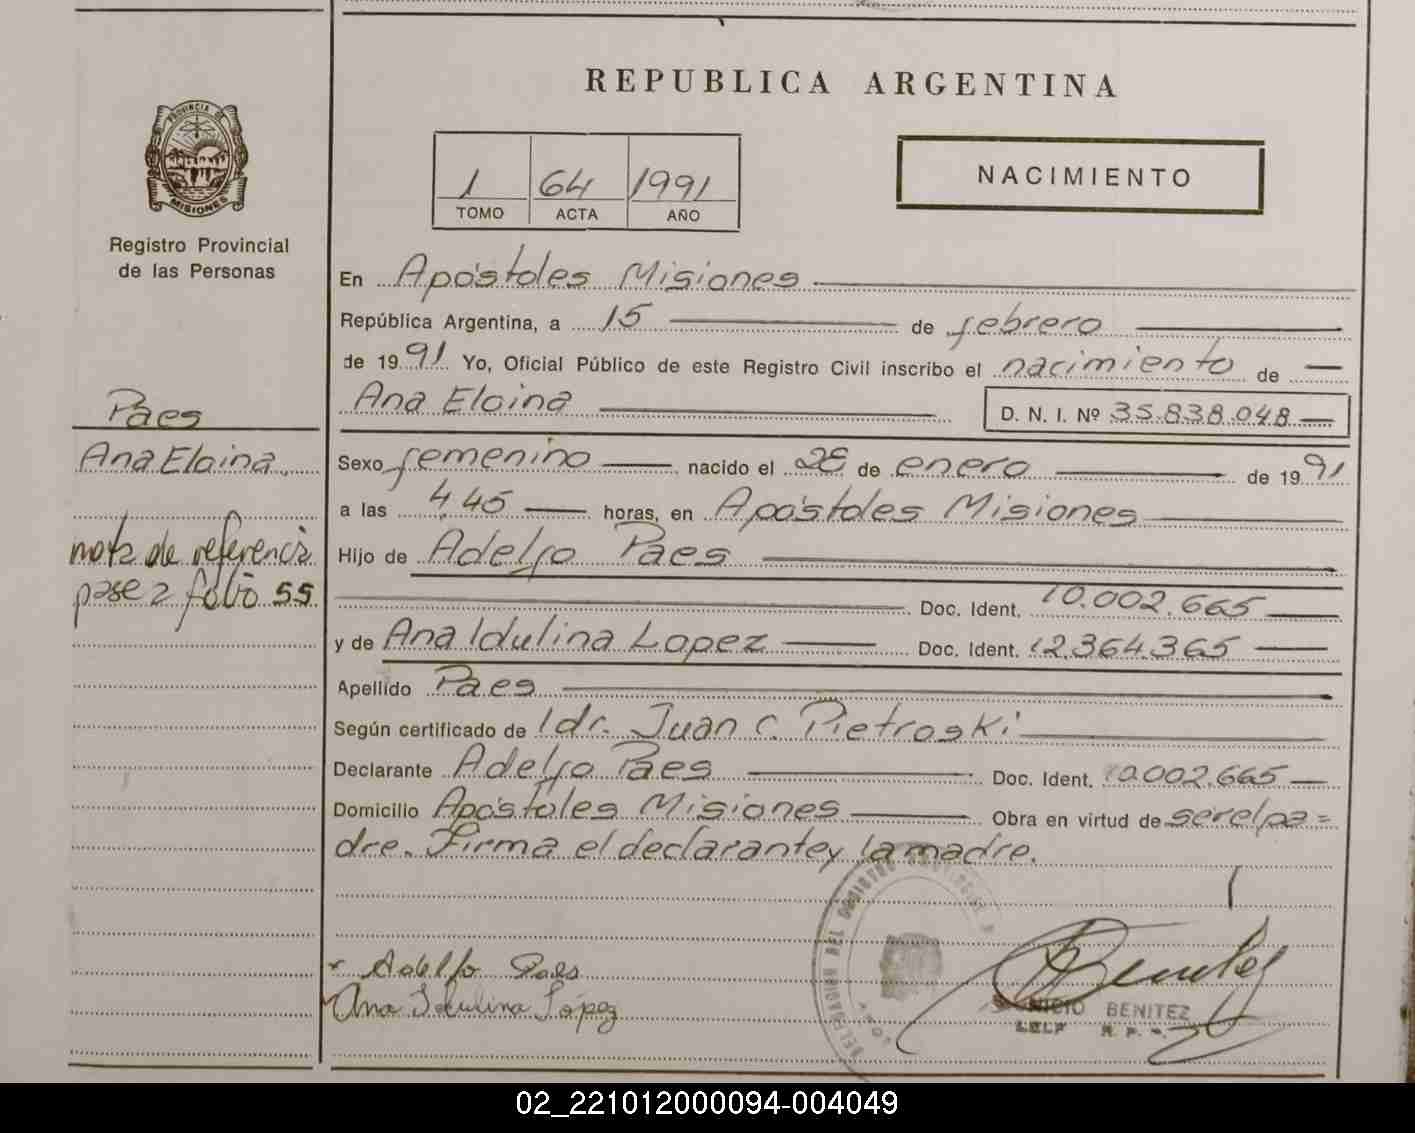 REPUBLICA ARGENTINA
PROVINCIA DE
MISIONES
Registro Provincial
de las Personas
1 64 1991
TOMO ACTA AÑO
NACIMIENTO
En Apóstoles Misiones
República Argentina, a 15 de febrero
de 1991 Yo, Oficial Público de este Registro Civil inscribo el nacimiento de
Ana Eloina D. N. I. Nº 35.838.048
Paes
Ana Eloina
nota de referencia
pase a folio 55
Sexo femenino nacido el 28 de enero de 1991
a las 4.45 horas, en Apóstoles Misiones
Hijo de Adelfo Paes
Doc. Ident. 10.002.665
y de Ana Idulina Lopez Doc. Ident. 12.364.365
Apellido Paes
Según certificado de Idr. Juan C. Pietroski
Declarante Adelfo Paes Doc. Ident. 10.002.665
Domicilio Apóstoles Misiones Obra en virtud de serelpa=
dre. Firma el declarantey lamadre.
Adelfo Paes
Ana Idulina López
DELEGACION DEL REGISTRO PROVINCIAL
BENITEZ
02_221012000094-004049